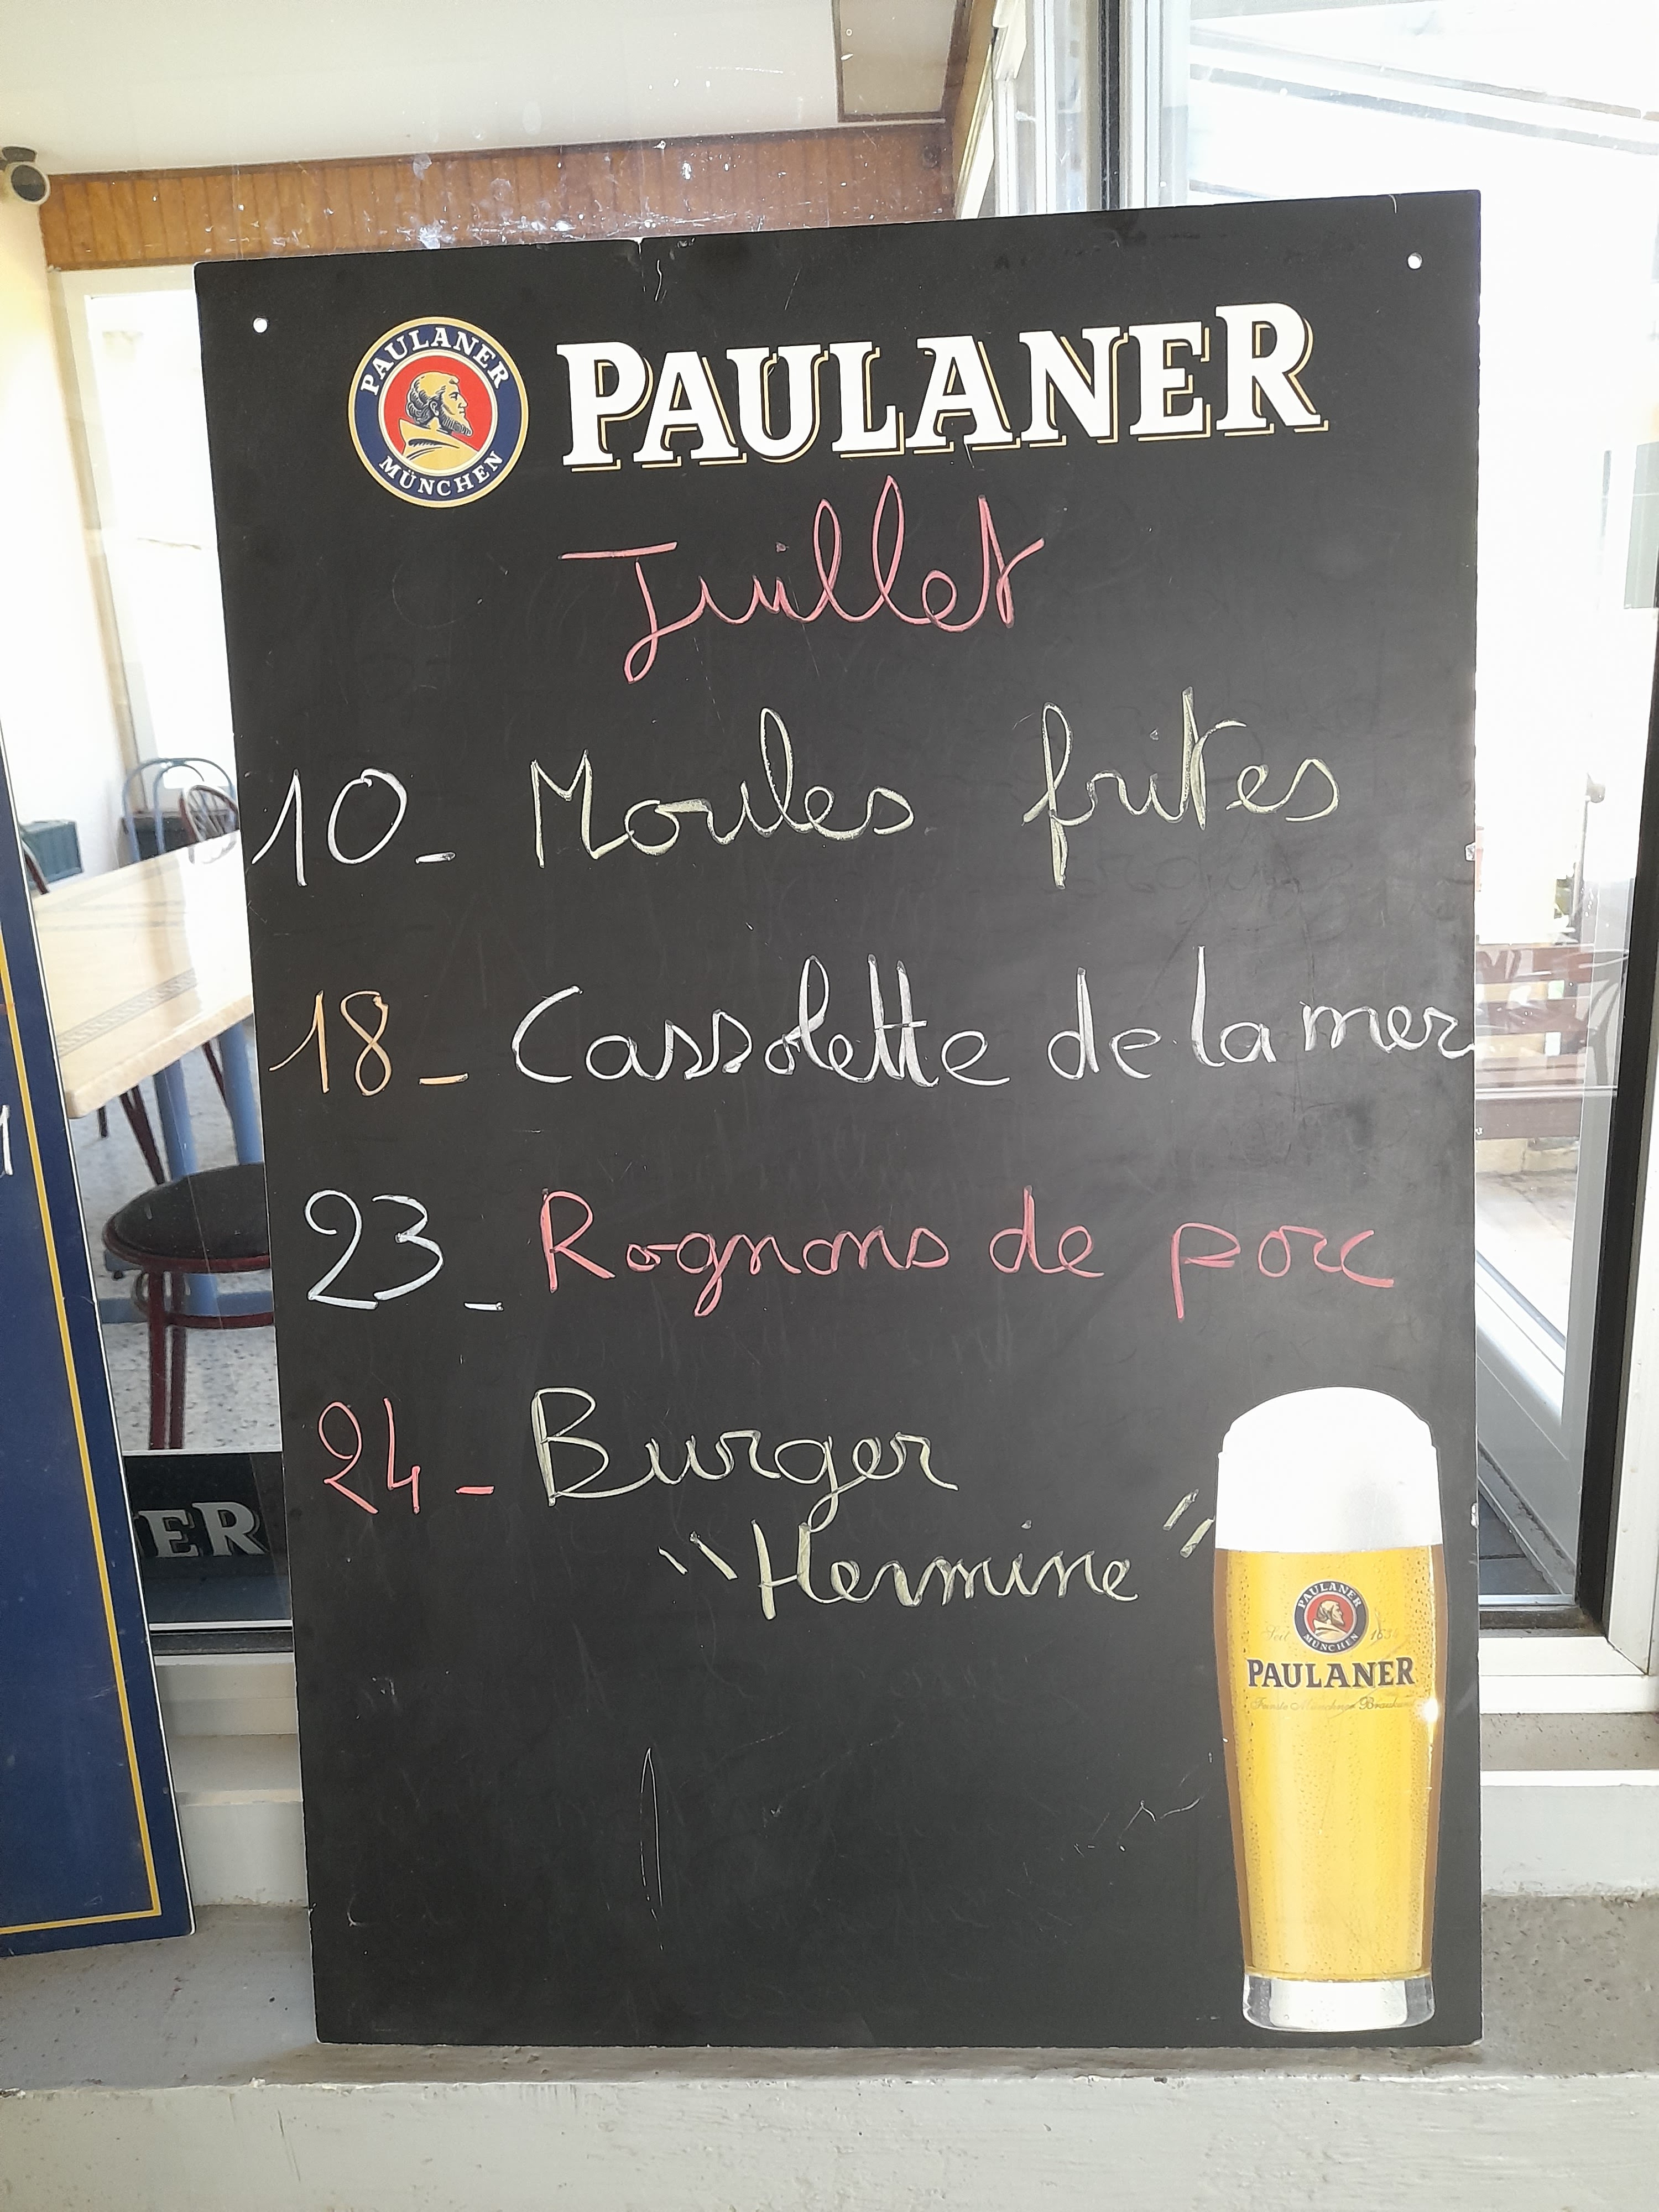 PAULANER
MÜNCHEN
PAULANER
Juillet
10_ Moules frites
18_ Cassolette de la mer
23_ Rognons de porc
24_ Burger
"Hermine"
PAULANER
MÜNCHEN
Seit 1634
PAULANER
ER